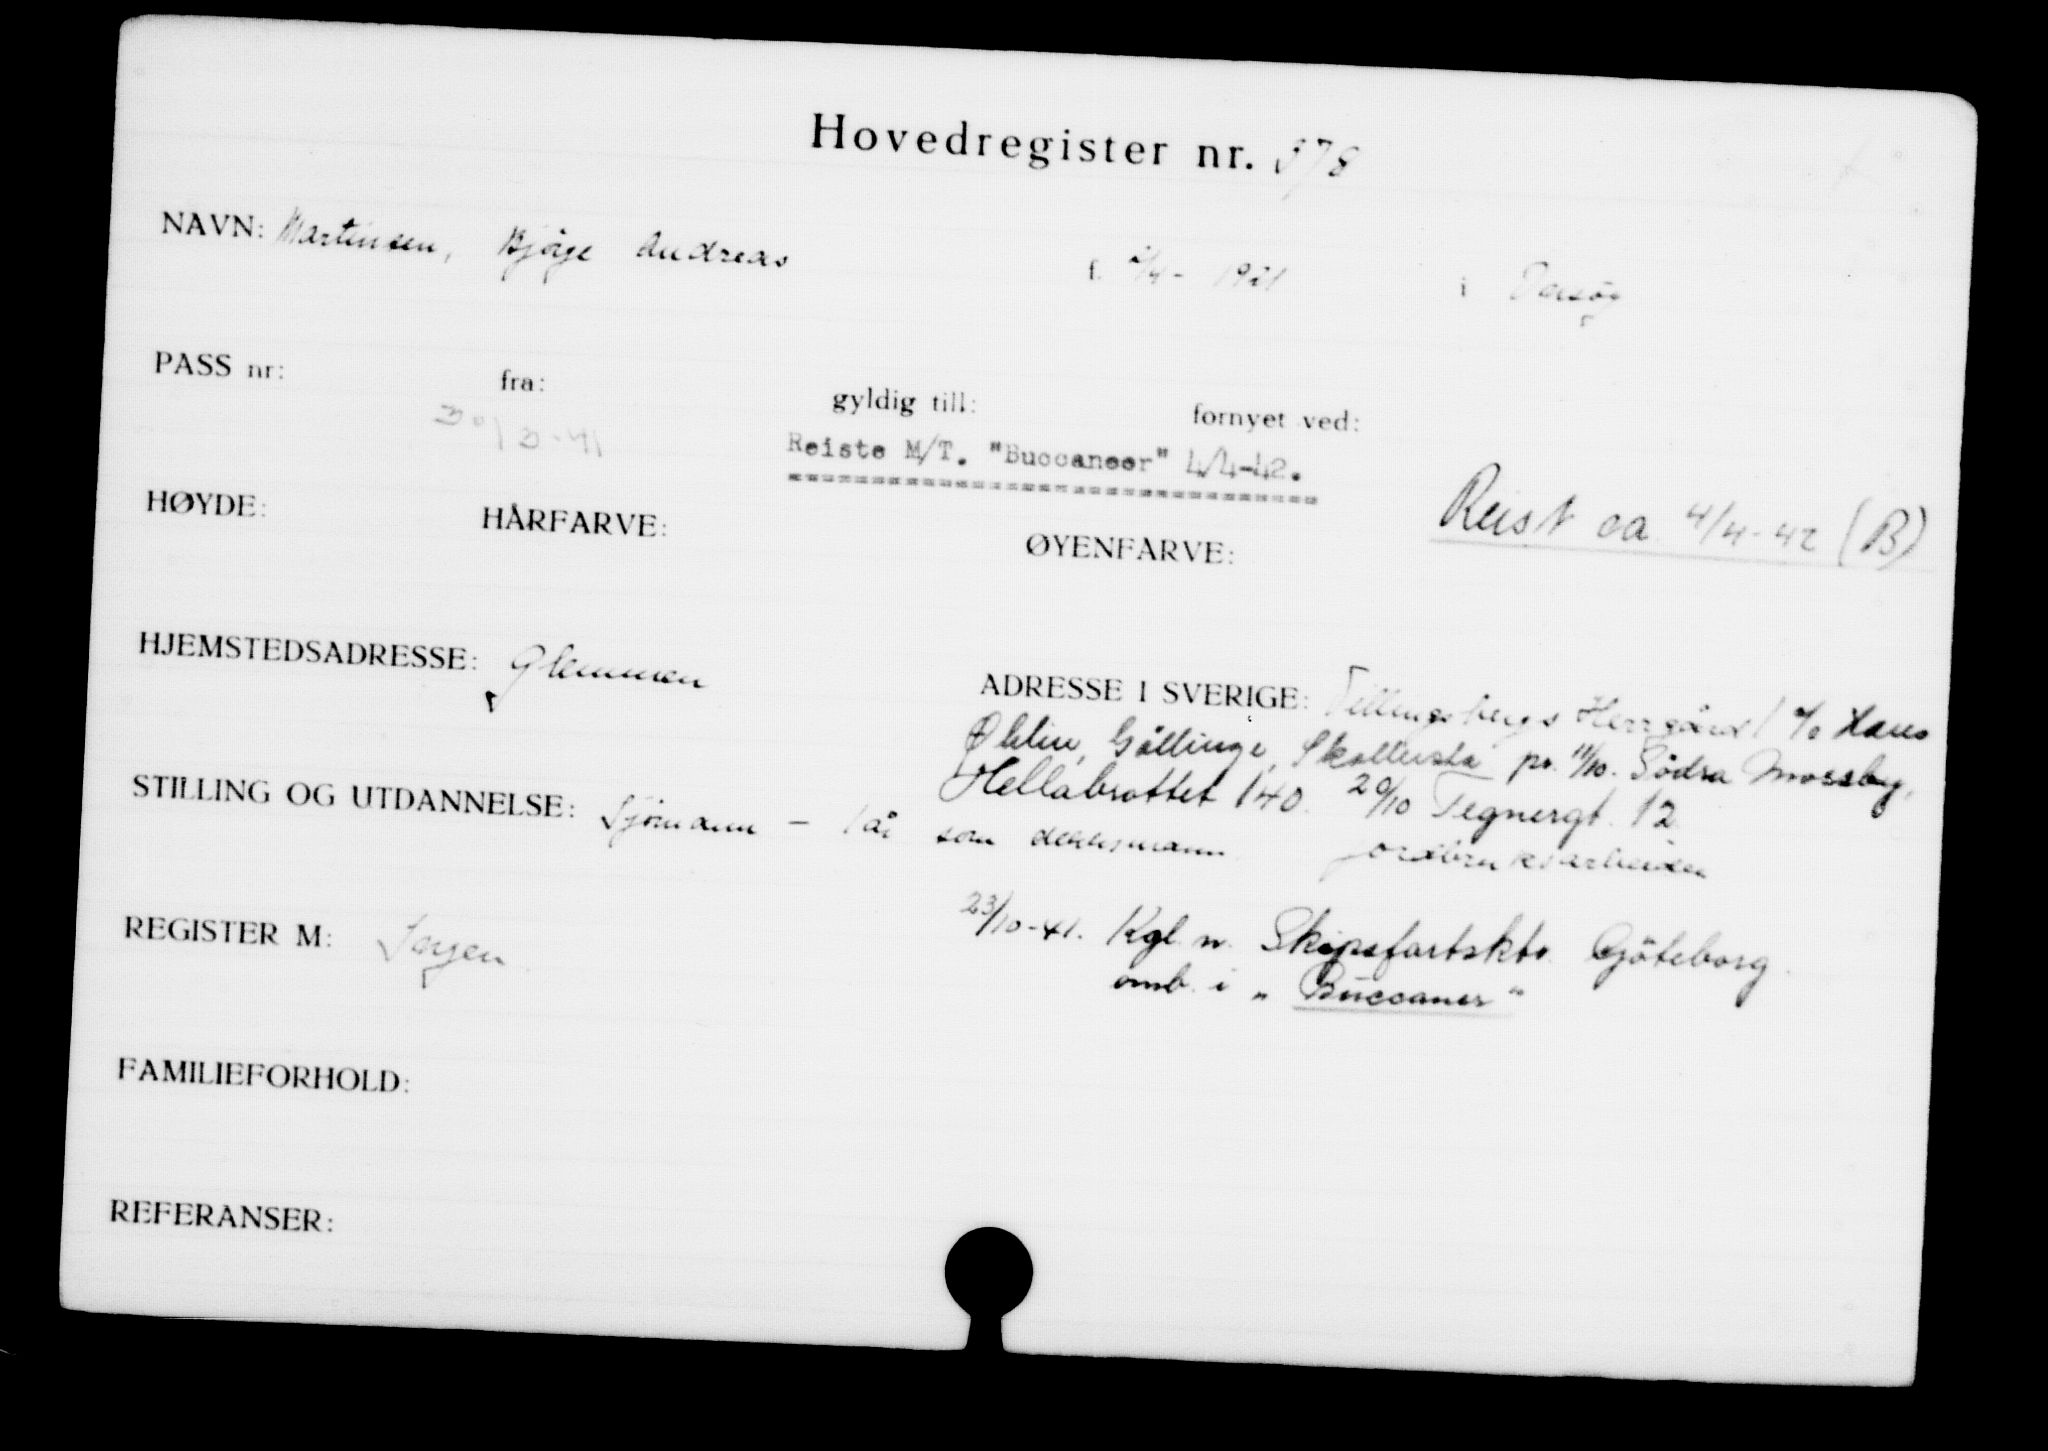 Hovedregister nr. 378
NAVN: Martinsen, Bjørge Andreas f. 2/4 - 1921 i Onsøy
PASS nr: fra: gyldig till: fornyet ved:
Reiste M/T. "Buccaneer" 4/4-42.
HØYDE: HÅRFARVE: ØYENFARVE: Reist ca 4/4-42 (B)
HJEMSTEDSADRESSE: Glemmen
ADRESSE I SVERIGE: Herrgård c/o Hans
Öhlin, Gällinge, Skollersta pr. 11/10. Södra Mossby,
Hellabrottet 140. 20/10 Tegnergt. 12
STILLING OG UTDANNELSE: Sjømann - 1 år som dekksmann jordbruksarbeider
REGISTER M:
23/10-41. Kgl. n. Skipsfartskto. Göteborg.
omb. i "Buccaner"
FAMILIEFORHOLD:
REFERANSER: